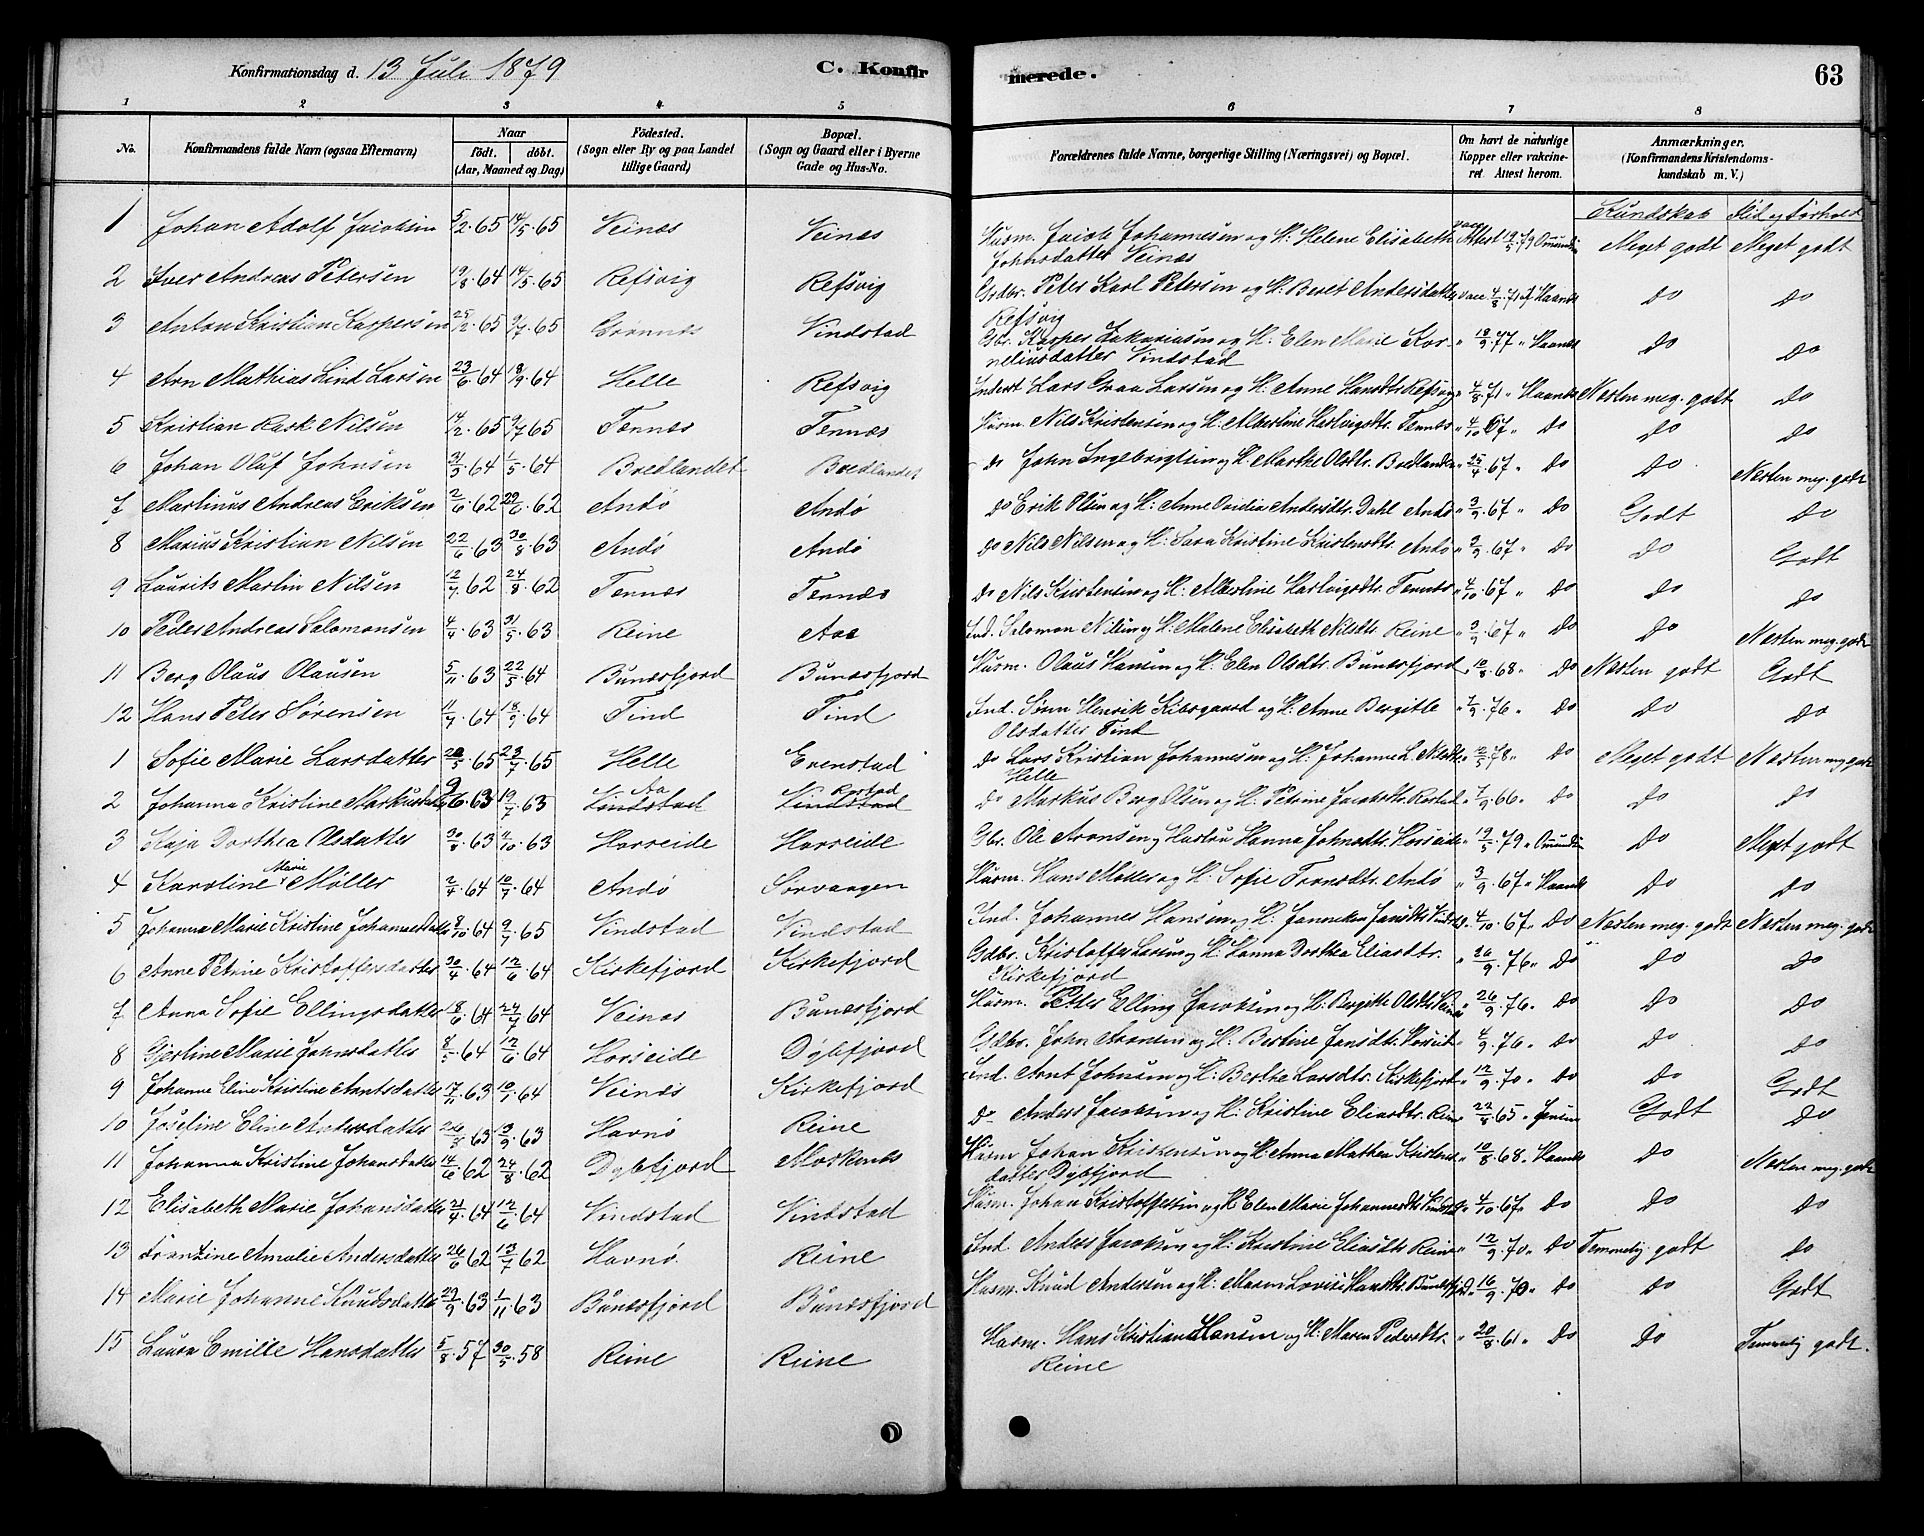 Konfirmationsdag d. 13 Juli 1879 C. Konfirmerede. 63
1 2 3 4 5 6 7 8
No. Konfirmandens fulde Navn (ogsaa Efternavn) Naar født. døbt. (Aar, Maaned og Dag) Födested. (Sogn eller By og paa Landet tillige Gaard) Bopæl. (Sogn og Gaard eller i Byerne Gade og Hus-No. Forældrenes fulde Navne, borgerlige Stilling (Næringsvei) og Bopæl. Om havt de naturlige Kopper eller vakcineret. Attest herom. Anmærkninger. (Konfirmandens Kristendomskundskab m. V.)
Kundskab Flid og Forhold
1 Johan Adolf Jacobsen 5/2.65 14/5.65 Veines Veines Husm. Jacob Johannesen og H. Helene Elisabeth Johnsdatter Veines vacc. Attest 19/5.79 Meget godt Meget godt
2 Iver Andreas Petersen 19/8.64 14/5.65 Refsvig Refsvig Grdbr. Peter Karl Petersen og H. Beret Andersdatter Refsvig vacc 4/8.71 Haands do do
3 Anton Kristian Kaspersen 25/2.65 9/7.65 Grønnes Vindstad Gbr. Kasper Zakariasen og H. Elen Marie Korneliusdatter Vindstad " 18/9.77 " Haands do do
4 Arn Mathias Lind Larsen 23/6.64 18/9.64 Helle Refsvig Inderst Lars Graa Larsen og H. Anne Hansdtr Refsvig " 4/8.71 " Haands Nesten meg. godt do
5 Kristian Rask Nilsen 14/2.65 9/7.65 Tennes Tennes Husm. Nils Kristensen og H. Albertine Hartvigsdtr. Tennes " 4/10.67 " do do do
6 Johan Oluf Johnsen 31/3.64 1/5.64 Bredlandet Bredlandet do John Ingebrigtsen og H. Marthe Olsdtr. Bredlandet " 25/4.67 " do do Nesten meg. godt
7 Martinus Andreas Eriksen 2/6.62 22/6.62 Andø Andø do Erik Olsen og H. Anne Ovidia Andersdtr. Dahl Andø " 3/9.67 " do Godt do
8 Marius Kristian Nilsen 22/6.63 30/8.63 Andø Andø do Nils Nilsen og H. Sara Kristine Kristensdtr. Andø " 3/9.67 " do do Godt
9 Laurits Martin Nilsen 12/7.62 24/8.62 Tennes Tennes do Nils Kristensen og H. Albertine Hartvigsdtr. Tennes " 4/10.67 " do do do
10 Peder Andreas Salomonsen 4/4.63 31/5.63 Reine Aaa Ind. Salomon Nilsen og H. Malene Elisabeth Nilsdtr. Reine " 3/9.67 " do do Nesten meg. godt
11 Berg Olaus Olausen 5/11.63 22/5.64 Bunesfjord Bunesfjord Husm. Olaus Hansen og H. Elen Olsdtr. Bunesfjord " 10/8.68 " do Nesten godt Godt
12 Hans Peter Sørensen 11/7.64 18/9.64 Tind Tind Ind. Sören Henrik Kibsgaard og H. Anne Bergitte Olsdatter Tind " 7/9.76 " do do do
1 Sofie Marie Larsdatter 20/5.65 23/7.65 Helle Evenstad do Lars Kristian Johannesen og H. Johanne L. Nilsdtr. Helle " 2/5.78 " do Meget godt Nesten meg. godt
2 Johanna Kristine Markusdatter 9/6.63 19/7.63 Vindstad Aa Vindstad Rostad do Markus Berg Olsen og H. Petrine Jacobsdtr. Rostad " 7/9.66 " do do do
3 Kaja Dorthea Olsdatter 30/8.63 4/10.63 Horseide Horseide Gbr. Ole Aronsen og Hustru Hanna Johnsdtr. Horseide " 19/5.79 " do Meget godt
4 Karoline Marie Møller 2/4.64 10/7.64 Andø Sørvaagen Husm. Hans Møller og H. Sofie Fransdtr. Andø " 3/9.67 " Haands do do
5 Johanna Marie Kristine Johannesdatter 8/10.64 9/7.65 Vindstad Vindstad Ind. Johannes Hansen og H. Janneken Jansdtr Vindstad " 4/10.67 " do Nesten meg. godt Nesten meg. godt
6 Anne Petrine Kristoffersdatter 30/4.64 12/6.64 Kirkefjord Kirkefjord Gdbr. Kristoffer Larsen og H. Hanna Dorthea Eliasdtr. Kirkefjord " 26/9.76 " do do do
7 Anna Sofie Ellingsdatter 18/6.64 24/7.64 Veines Bunesfjord Husm. Peter Elling Jacobsen og H. Bergitte Olsdtr Veines " 26/9.76 " do do do
8 Gjertine Marie Johnsdatter 8/5.64 12/6.64 Horseide Dybfjord Gdbr. John Aronsen og H. Bertine Jansdtr. Horseid " 4/9.76 " do do do
9 Johanne Eline Kristine Arntsdatter 17/11.63 10/1.64 Veines Kirkefjord Ind. Arnt Johnsen og H. Berthe Larsdtr. Kirkefjord " 12/9.70 " do do Godt
10 Joseline Eline Andersdatter 26/8.63 13/9.63 Havnø Reine do Anders Jacobsen og H. Kristine Eliasdtr. Reine " 22/8.65 " Jensen Godt do
11 Johanna Kristine Johansdatter 14/6.62 24/8.62 Dybfjord Moskenes Husm Johan Kristensen og H. Anna Mathea Kristensdatter Dybfjord " 10/8.68 " Haands do Nesten meg. godt
12 Elisabeth Marie Johansdatter 24/4.64 12/6.64 Vindstad Vindstad Husm. Johan Kristoffersen og H. Elen Marie Johannesdtr Vindstad " 4/10.67 " do do do
13 Frantzine Amalie Andersdatter 26/6 62 13/7 62 Havnø Reine Ind. Anders Jacobsen og H. Kristine Eliasdtr Reine " 12/9.70 " do Temmelig godt do
14 Marie Johanne Knudsdatter 29/9.63 1/11.63 Bunesfjord Bunesfjord Husm. Knud Andersen og H. Maren Lovise Hansdtr. Bunesfjord " 16/9.70 " do do Godt
15 Laura Emilie Hansdatter 5/8.57 30/5.58 Reine Reine Husm. Hans Kristian Hansen og H. Maren Pedersdtr. Reine " 20/8.61 " do do Temmelig godt.